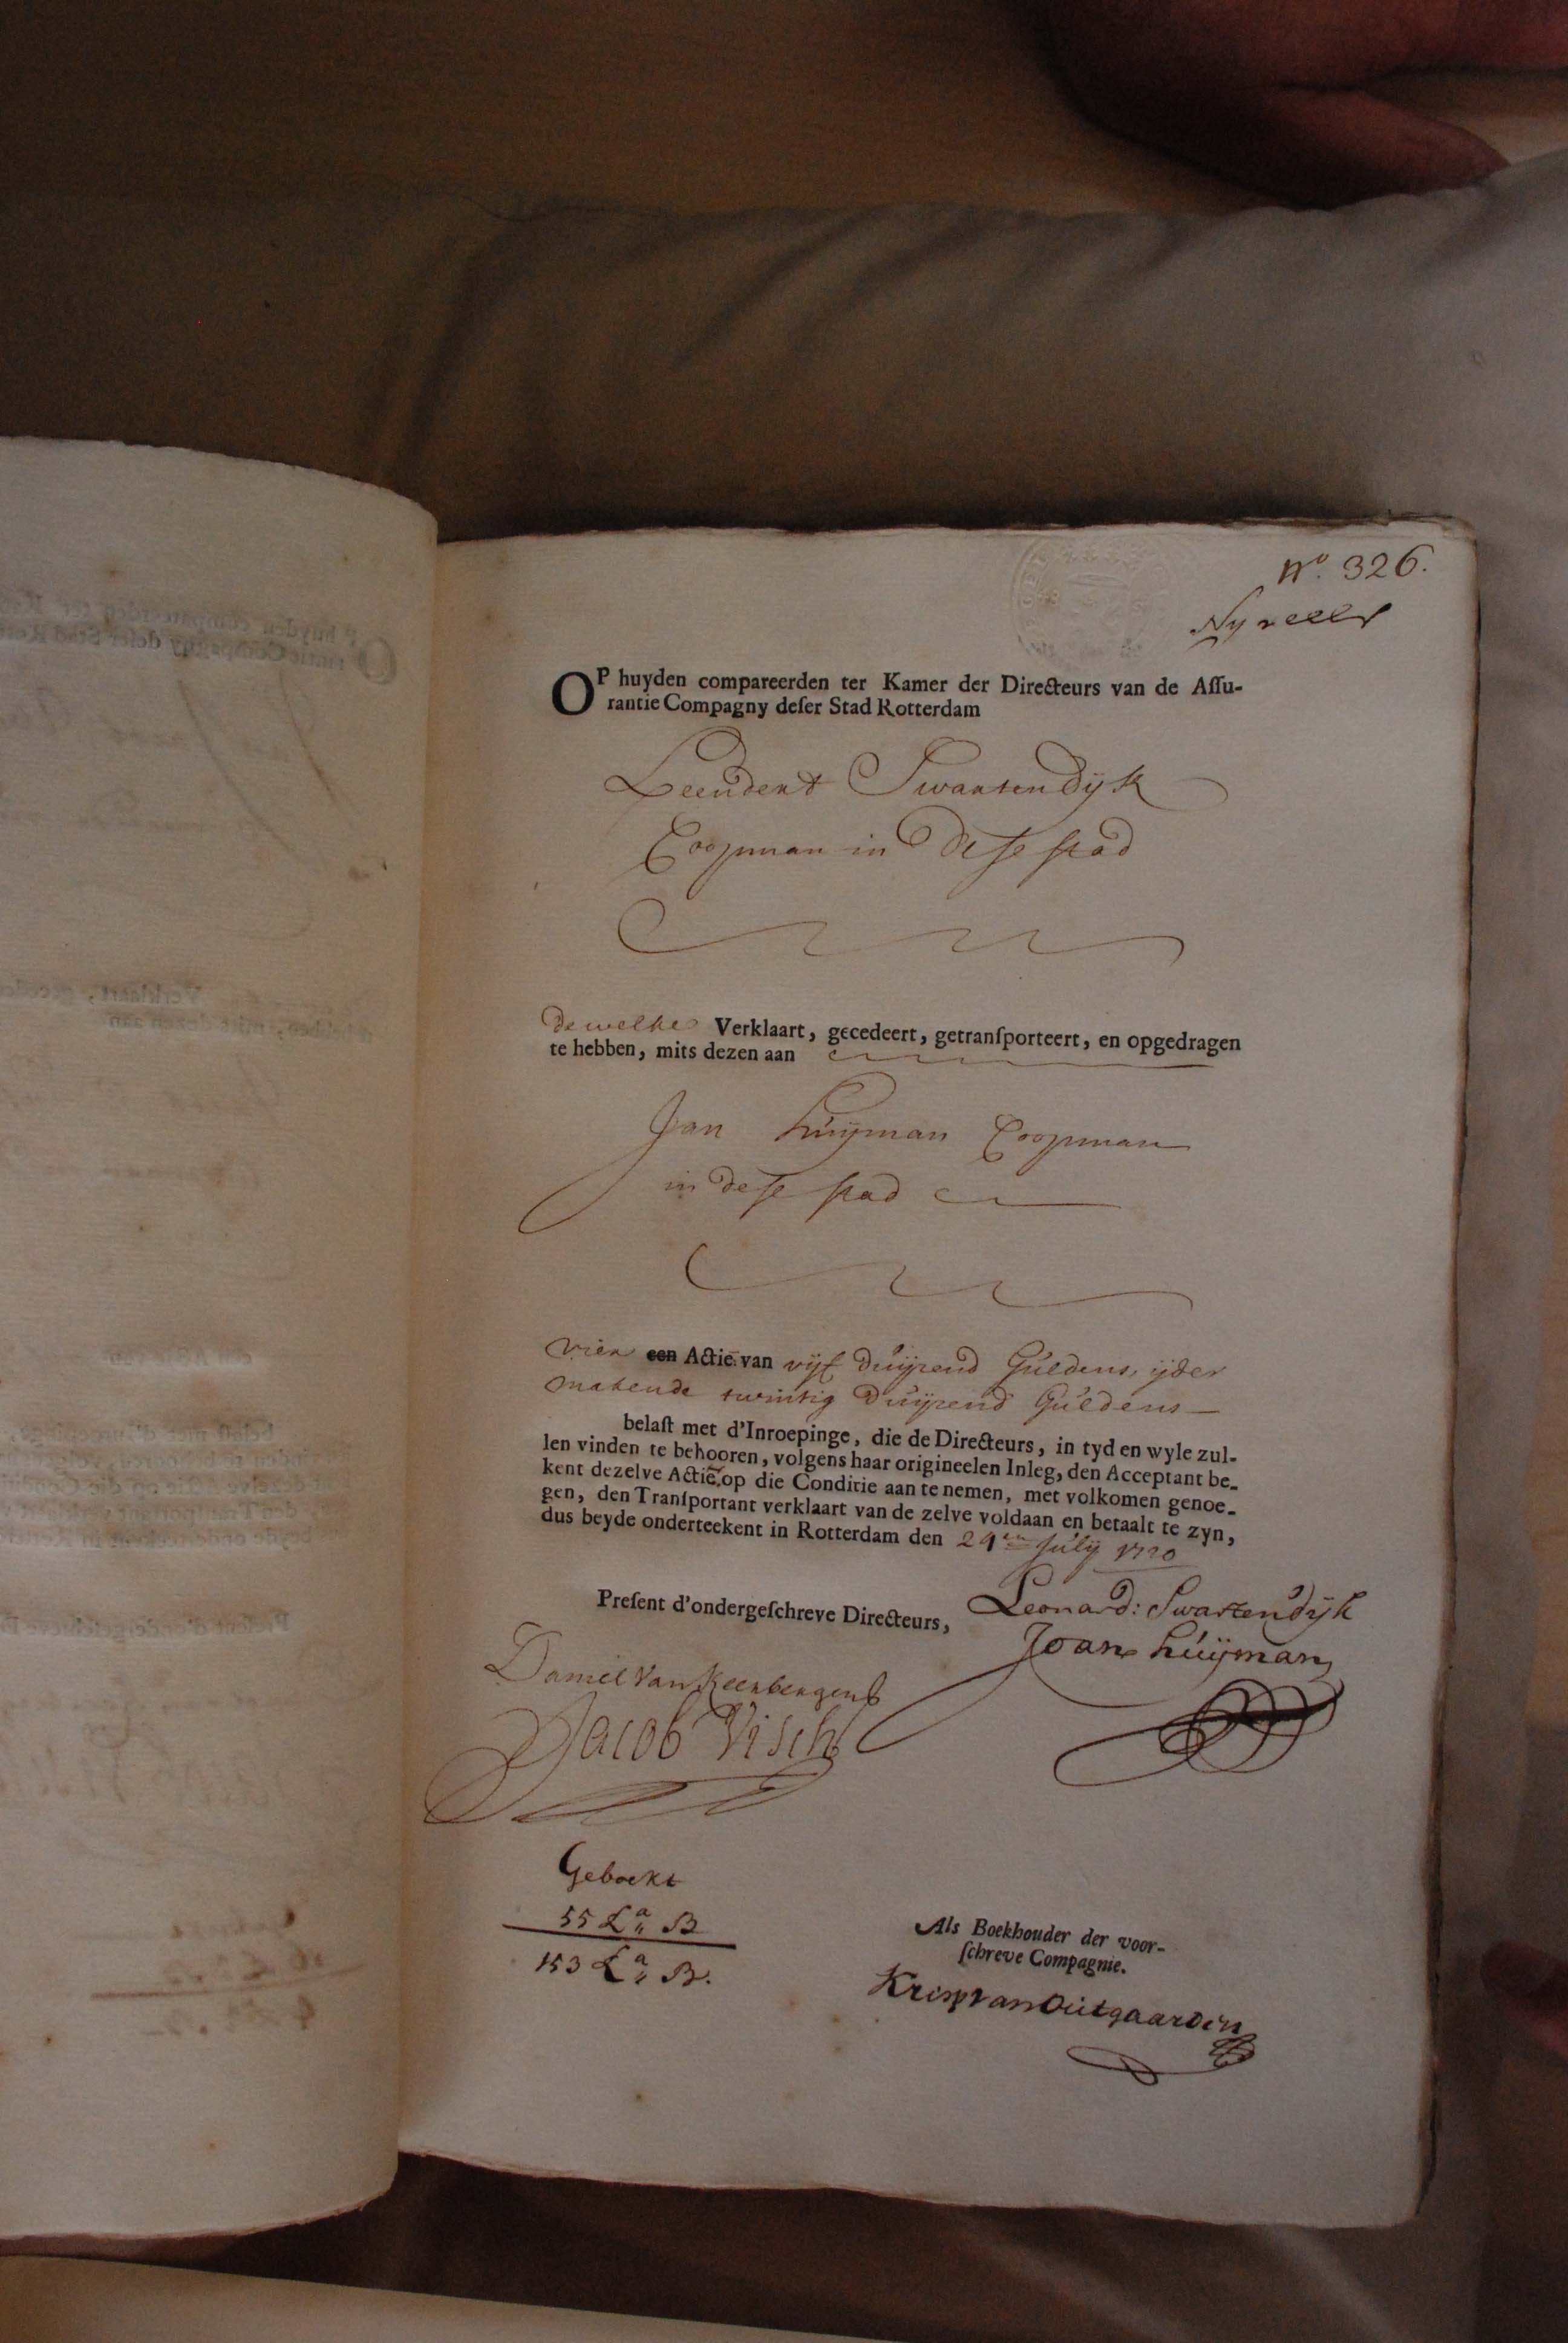 No. 326.
OP huyden compareerden ter Kamer der Directeurs van de Aſſu-
rantie Compagny deſer Stad Rotterdam
Leendert Swartendijk
Coopman in dese stad
dewelke Verklaart, gecedeert, getranſporteert, en opgedragen
te hebben, mits dezen aan
Jan Huijman Coopman
in dese stad
vier een Actie van vijf duijsend Guldens, ijder
makende twintig duijsend Guldens
belaſt met d'Inroepinge, die de Directeurs, in tyd en wyle zul-
len vinden te behooren, volgens haar origineelen Inleg, den Acceptant be-
kent dezelve Actie op die Conditie aan te nemen, met volkomen genoe-
gen, den Tranſportant verklaart van de zelve voldaan en betaalt te zyn,
dus beyde onderteekent in Rotterdam den 29en Julij 1720
Preſent d'ondergeſchreve Directeurs,
Leonard: Swartendijk
Joan Huijman
Daniel Van Keerbergen
Jacob Visch
Geboekt
55 La B
153 La B.
Als Boekhouder der voor-
ſchreve Compagnie.
Krisp van Outgaarden